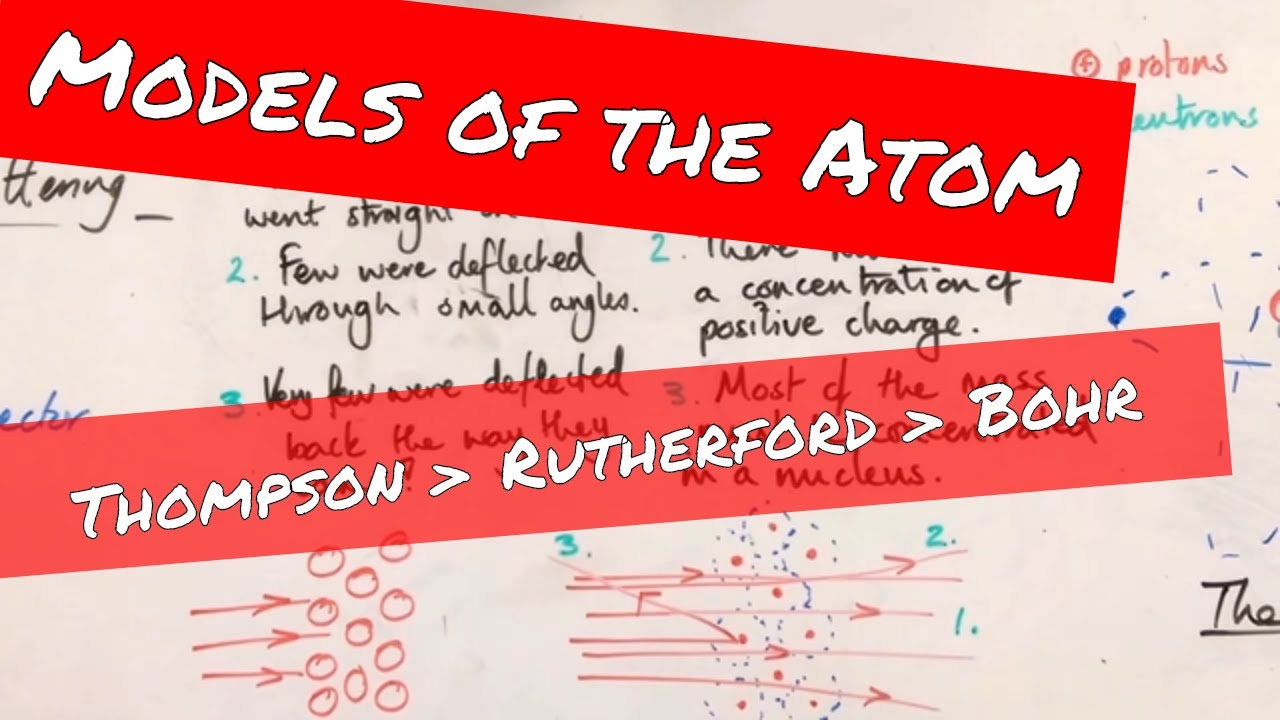 Models of the Atom
⊕ protons
eutrons
ttering
went straight
2. Few were deflected
through small angles.
2. There
a concentration of
positive charge.
3. Very few were deflected
back the way they
?
3. Most of the mass
concentrated
in a nucleus.
ector
Thompson > Rutherford > Bohr
3.
2.
1.
The